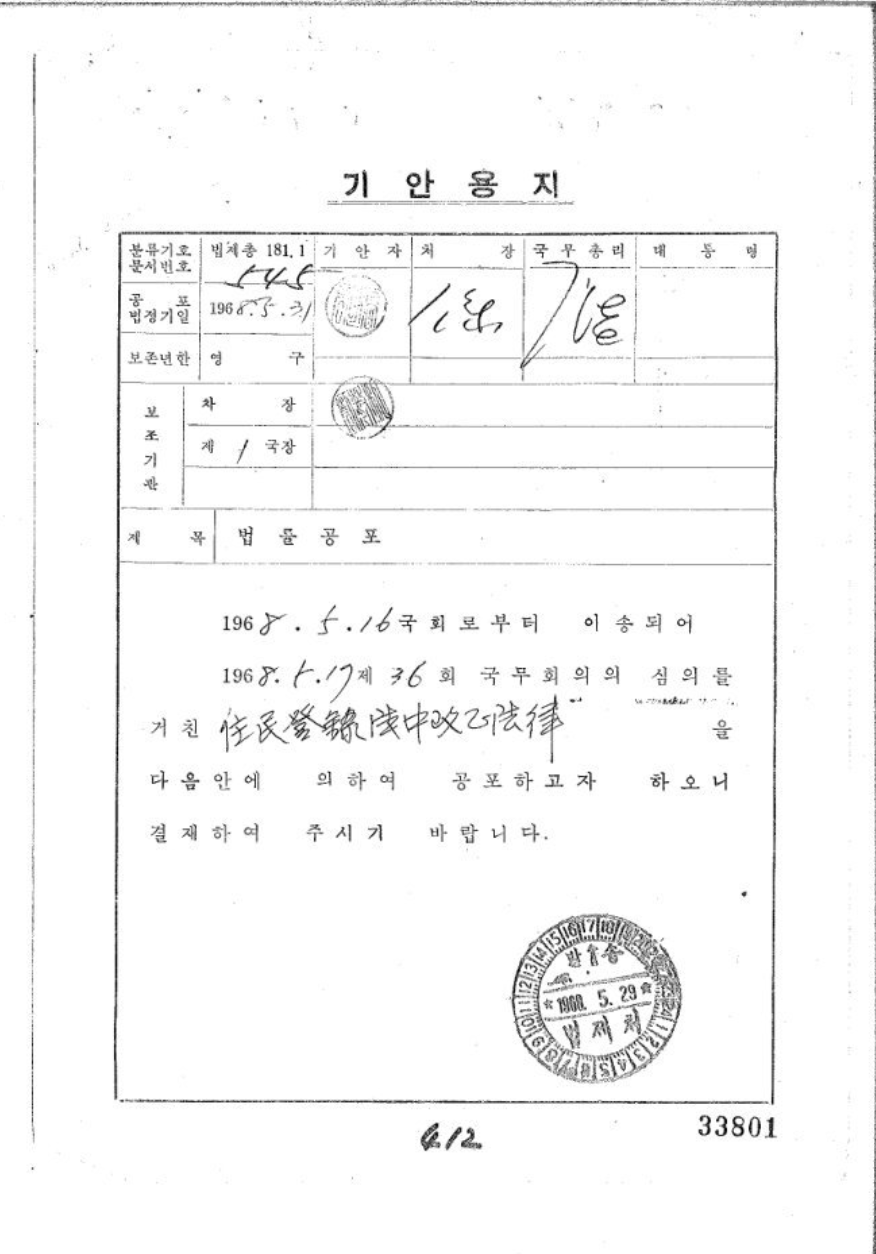 기 안 용 지
분류기호 문서번호 법제총 181.1 545 기 안 자 처 장 국 무 총 리 대 통 령
공 포 법정기일 1968.5.31
보존년한 영 구
보 조 기 관 차 장
제 1 국장
제 목 법 률 공 포
1968.5.16 국 회 로 부 터 이 송 되 어
1968.5.17 제 36 회 국 무 회 의 의 심 의 를
거 친 住民登錄法中改正法律 을
다 음 안 에 의 하 여 공 포 하 고 자 하 오 니
결 재 하 여 주 시 기 바 랍 니 다.
발 송
1968. 5. 29
법 제 처
412
33801